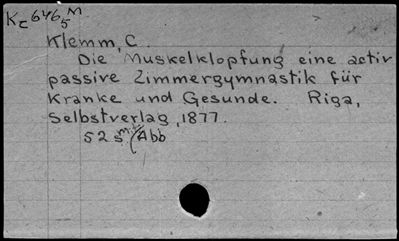 Kc646 5 M
Klemm, C.
Die Muskelklopfung eine activ
passive Zimmergymnastik für
Kranke und Gesunde. Riga,
Selbstverlag, 1877.
52 s m (Abb